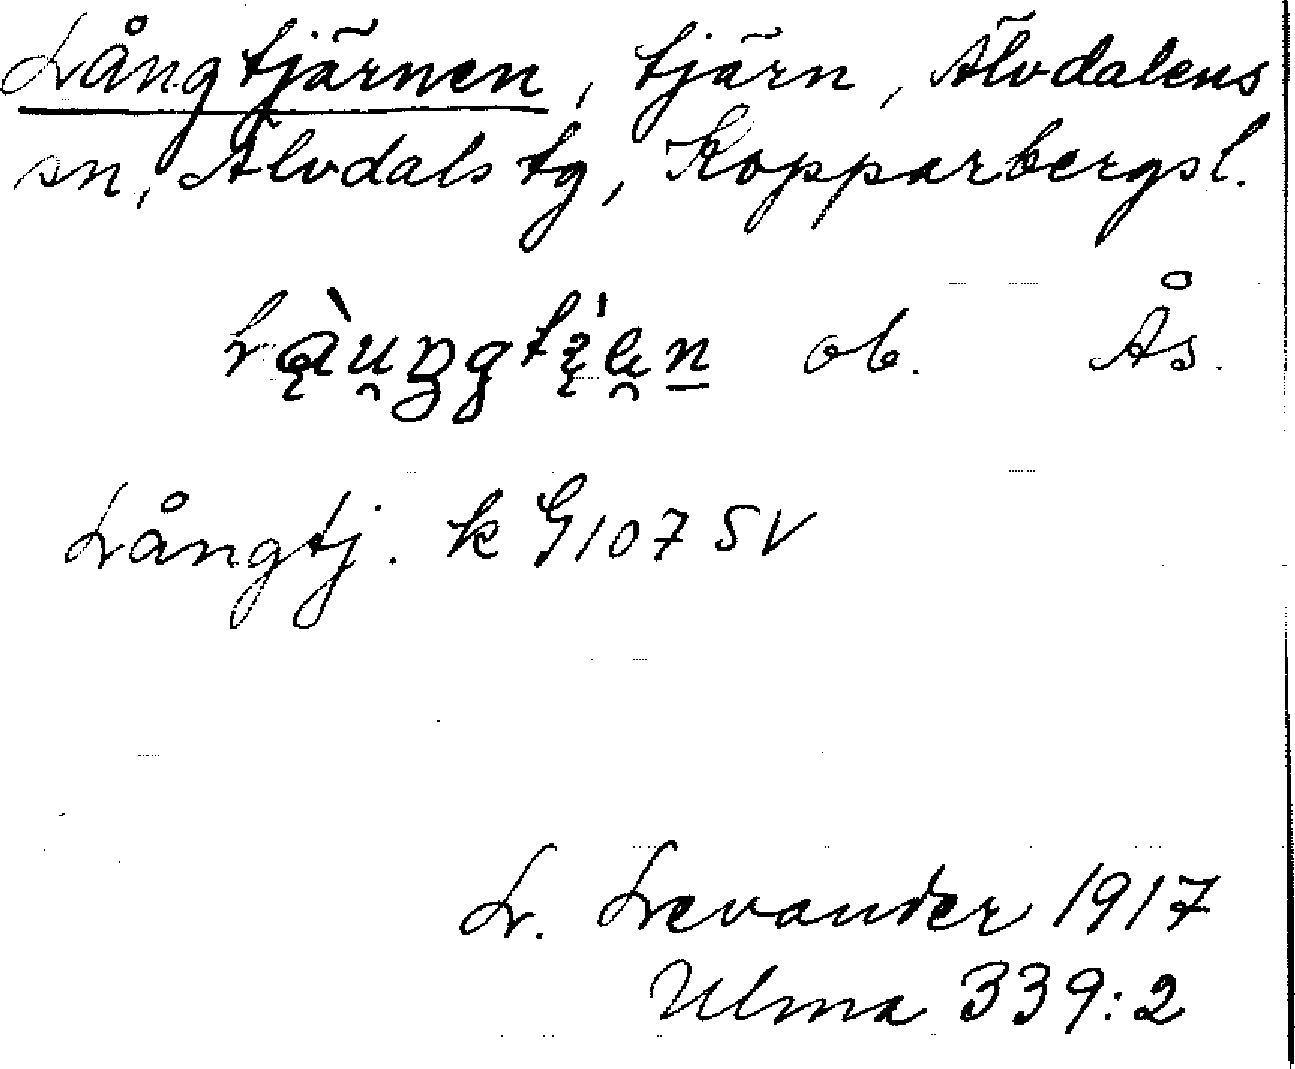 Långtjärnen, tjärn, Älvdalens
sn, Älvdals tg, Kopparbergs l.
ob. Ås.
Långtj. k G107 SV
L. Levander 1917
Ulma 339:2